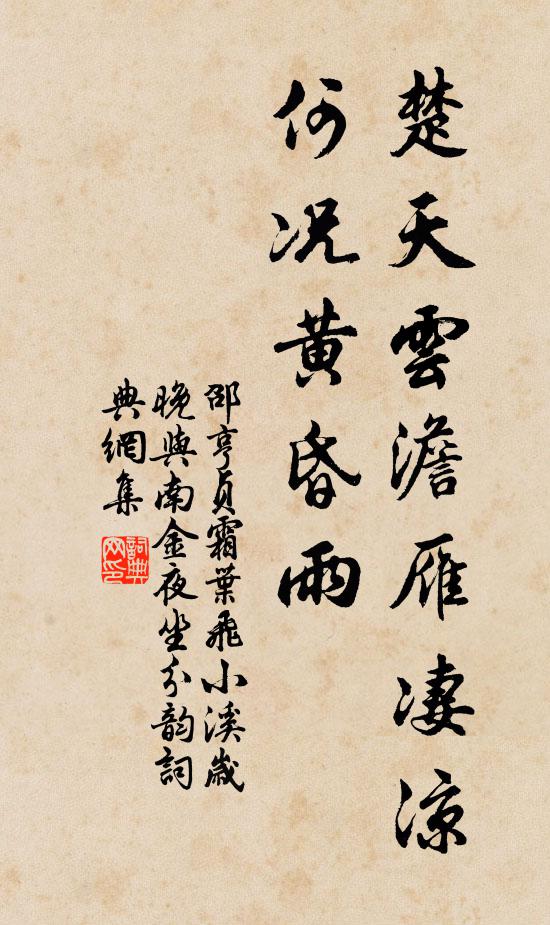 楚天雲澹雁凄涼
何况黄昏雨
邵亨貞霜葉飛小溪歲
晚與南金夜坐分韵詞
典網集
詞典
网印